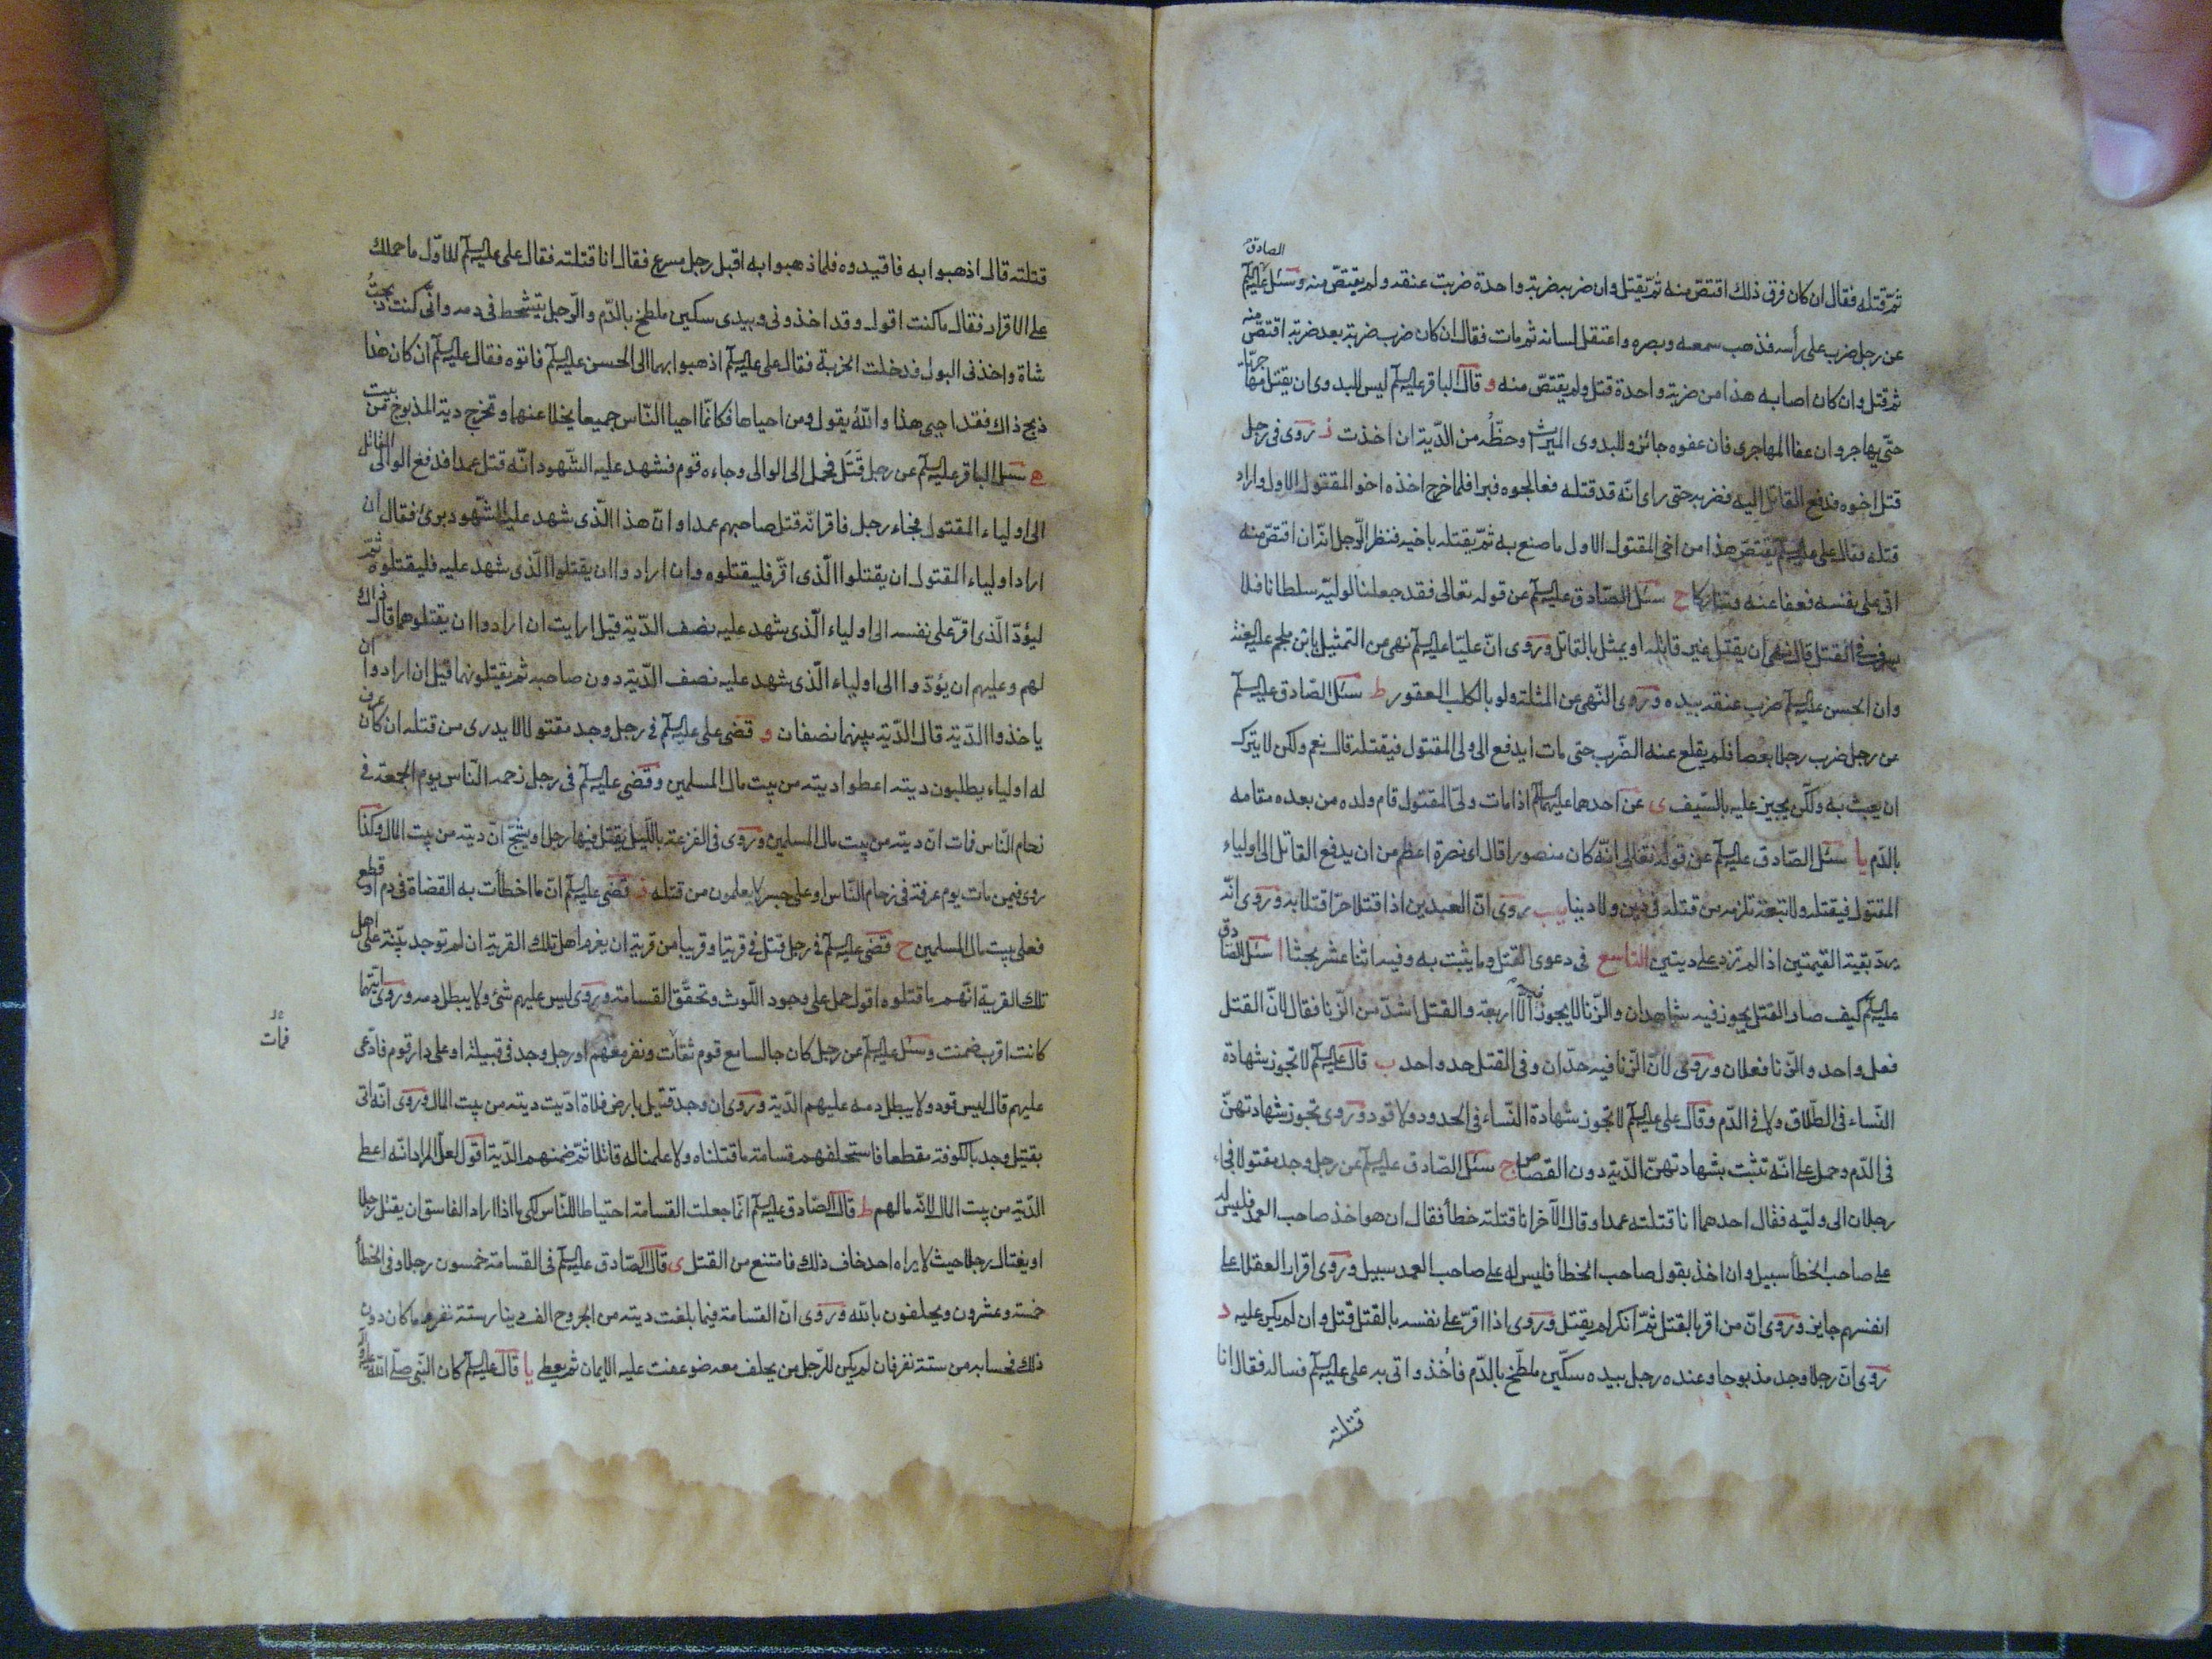 الصادق
ثم قتله فقال ان كان فرق ذلك اقتص منه ثم يقتل وان ضربه ضربة واحدة ضربت عنقه ولم يقتص منه وسئل عليه السلم
عن رجل ضرب على رأسه فذهب سمعه وبصره واعتقل لسانه ثم مات فقال ان كان ضرب ضربة بعد ضربة اقتص منه
ثم قتل وان كان اصابه هذا من ضربة واحدة قتل ولم يقتص منه و قال الباقر عليه السلم ليس للبدوى ان يقتل مهاجريا
حتى يهاجر وان عفا المهاجرى فان عفوه جائز وللبدوى الميراث وحظه من الدية ان اخذت ز روى فى رجل
قتل اخوه فدفع القاتل اليه فضربه حتى راى انه قد قتله فعالجوه فبرا فلما خرج اخذه اخو المقتول الاول واراد
قتله فقال على عليه السلم يقتص هذا من اخى المقتول الاول ما صنع به ثم يقتله باخيه فنظر الرجل انه ان اقتص منه
اتى على نفسه فعفا عنه وتتاركا ح سئل الصادق عليه السلم عن قوله تعالى فقد جعلنا لوليه سلطانا فلا
يسرف فى القتل قال نهى ان يقتل غير قاتله او يمثل بالقاتل وروى ان عليا عليه السلم نهى من التمثيل بابن ملجم عليه اللعنة
وان الحسن عليه السلم ضرب عنقه بيده وروى النهى عن المثلة ولو بالكلب العقور ط سئل الصادق عليه السلم
عن رجل ضرب رجلا بعصا فلم يقلع عنه الضرب حتى مات ايدفع الى ولى المقتول فيقتله قال نعم ولكن لا يترك
ان يعبث به ولكن يجيز عليه بالسيف ى عن احدهما عليهما السلم اذا مات ولى المقتول قام ولده من بعده مقامه
بالدم يا سئل الصادق عليه السلم عن قوله تعالى انه كان منصورا قال اى نصرة اعظم من ان يدفع القاتل الى اولياء
المقتول فيقتله ولا تبعة تلزمه من قتله فى دين ولا دنيا يب روى ان العبدين اذا قتلا حرا قتلا به وروى انه
يرد بقية القيمتين اذا لم تزد على ديتين التاسع فى دعوى القتل وما يثبت به وفيه اثنا عشر بحثا ا سئل الصادق
عليه السلم كيف صار القتل يجوز فيه شاهدان والزنا لا يجوز فيه الا اربعة والقتل اشد من الزنا فقال لان القتل
فعل واحد والزنا فعلان وروى لان الزنا فيه حدان وفى القتل حد واحد ب قال عليه السلم لا تجوز شهادة
النساء فى الطلاق ولا فى الدم وقال على عليه السلم لا تجوز شهادة النساء فى الحدود ولا قود وروى تجوز شهادتهن
فى الدم وحمل على انه تثبت بشهادتهن الدية دون القصاص ج سئل الصادق عليه السلم عن رجل وجد مقتولا فجاء
رجلان الى وليه فقال احدهما انا قتلته عمدا وقال الآخر انا قتلته خطأ فقال ان هو اخذ صاحب العمد فليس له
على صاحب الخطأ سبيل وان اخذ بقول صاحب الخطأ فليس له على صاحب العمد سبيل وروى اقرار العقلاء على
انفسهم جايز وروى ان من اقر بالقتل ثم انكر لم يقتل وروى اذا اقر على نفسه بالقتل قتل وان لم يكن عليه د
روى ان رجلا وجد مذبوحا وعنده رجل بيده سكين ملطخ بالدم فأخذ واتى به على عليه السلم فساله فقال انا
قتلته
قتلته قال اذهبوا به فاقيدوه فلما ذهبوا به اقبل رجل مسرع فقال انا قتلته فقال على عليه السلم للاول ما حملك
على الاقرار فقال ما كنت اقول وقد اخذونى وبيدى سكين ملطخ بالدم والرجل يتشحط فى دمه وانى كنت ذبحت
شاة واخذنى البول فدخلت الخربة فقال على عليه السلم اذهبوا بهما الى الحسن عليه السلم فاتوه فقال عليه السلم ان كان هذا
ذبح ذاك فقد احيى هذا والله يقول ومن احياها فكانما احيا الناس جميعا يخلا عنهما وتخرج دية المذبوح من بيت
ه سئل الباقر عليه السلم عن رجل قتل فحمل الى الوالى وجاءه قوم فشهد عليه الشهود انه قتل عمدا فدفع الوالى القاتل
الى اولياء المقتول فجاء رجل فاقر انه قتل صاحبهم عمدا وان هذا الذى شهد عليه الشهود برئ فقال ان
اراد اولياء المقتول ان يقتلوا الذى اقر فليقتلوه وان ارادوا ان يقتلوا الذى شهد عليه فليقتلوه ثم
ليؤد الذى اقر على نفسه الى اولياء الذى شهد عليه نصف الدية قيل ارايت ان ارادوا ان يقتلوهما قال ذاك
لهم وعليهم ان يؤدوا الى اولياء الذى شهد عليه نصف الدية دون صاحبه ثم يقتلونهما قيل ان ارادوا ان
ياخذوا الدية قال الدية بينهما نصفان و قضى على عليه السلم فى رجل وجد مقتولا لا يدرى من قتله ان كان عرف
له اولياء يطلبون ديته اعطوا ديته من بيت مال المسلمين وقضى عليه السلم فى رجل زحمه الناس يوم الجمعة فى
زحام الناس فمات ان ديته من بيت مال المسلمين وروى فى الفزعة بالليل يقتل فيها رجل او يشج ان ديته من بيت المال وكذا
روى فيمن مات يوم عرفة فى زحام الناس او على جسر لا يعلمون من قتله ز قضى عليه السلم ان ما اخطأت به القضاة فى دم او قطع
فعلى بيت مال المسلمين ح قضى عليه السلم فى رجل قتل فى قرية او قريبا من قرية ان يغرم اهل تلك القرية ان لم توجد بينة على اهل
تلك القرية انهم ما قتلوه اقول حمل على وجود اللوث وتحقق القسامة وروى ليس عليهم شئ ولا يبطل دمه وروى ايتهما
كانت اقرب ضمنت وسئل عليه السلم عن رجل كان جالسا مع قوم ثقات ونفر معهم او رجل وجد فى قبيلة او على دار قوم فادعى
فمات
عليهم قال ليس قود ولا يبطل دمه عليهم الدية وروى ان وجد قتيل بارض فلاة اديت ديته من بيت المال وروى انه اتى
بقتيل وجد بالكوفة مقطعا فاستحلفهم قسامة ما قتلناه ولا علمنا له قاتلا ثم ضمنهم الدية اقول لعل المراد انه اعطى
الدية من بيت المال لانه مالهم ط قال الصادق عليه السلم انما جعلت القسامة احتياطا للناس لكيما اذا اراد الفاسق ان يقتل رجلا
او يغتال رجلا حيث لا يراه احد خاف ذلك فامتنع من القتل ى قال الصادق عليه السلم فى القسامة خمسون رجلا وفى الخطأ
خمسة وعشرون ويحلفون بالله وروى ان القسامة فيما بلغت ديته من الجروح الف دينار ستة نفر وما كان دون
ذلك فحسابه من ستة نفر فان لم يكن للرجل من يحلف معه ضوعفت عليه الايمان ثم يعطى يا قال عليه السلم كان النبى صلى الله عليه وآله